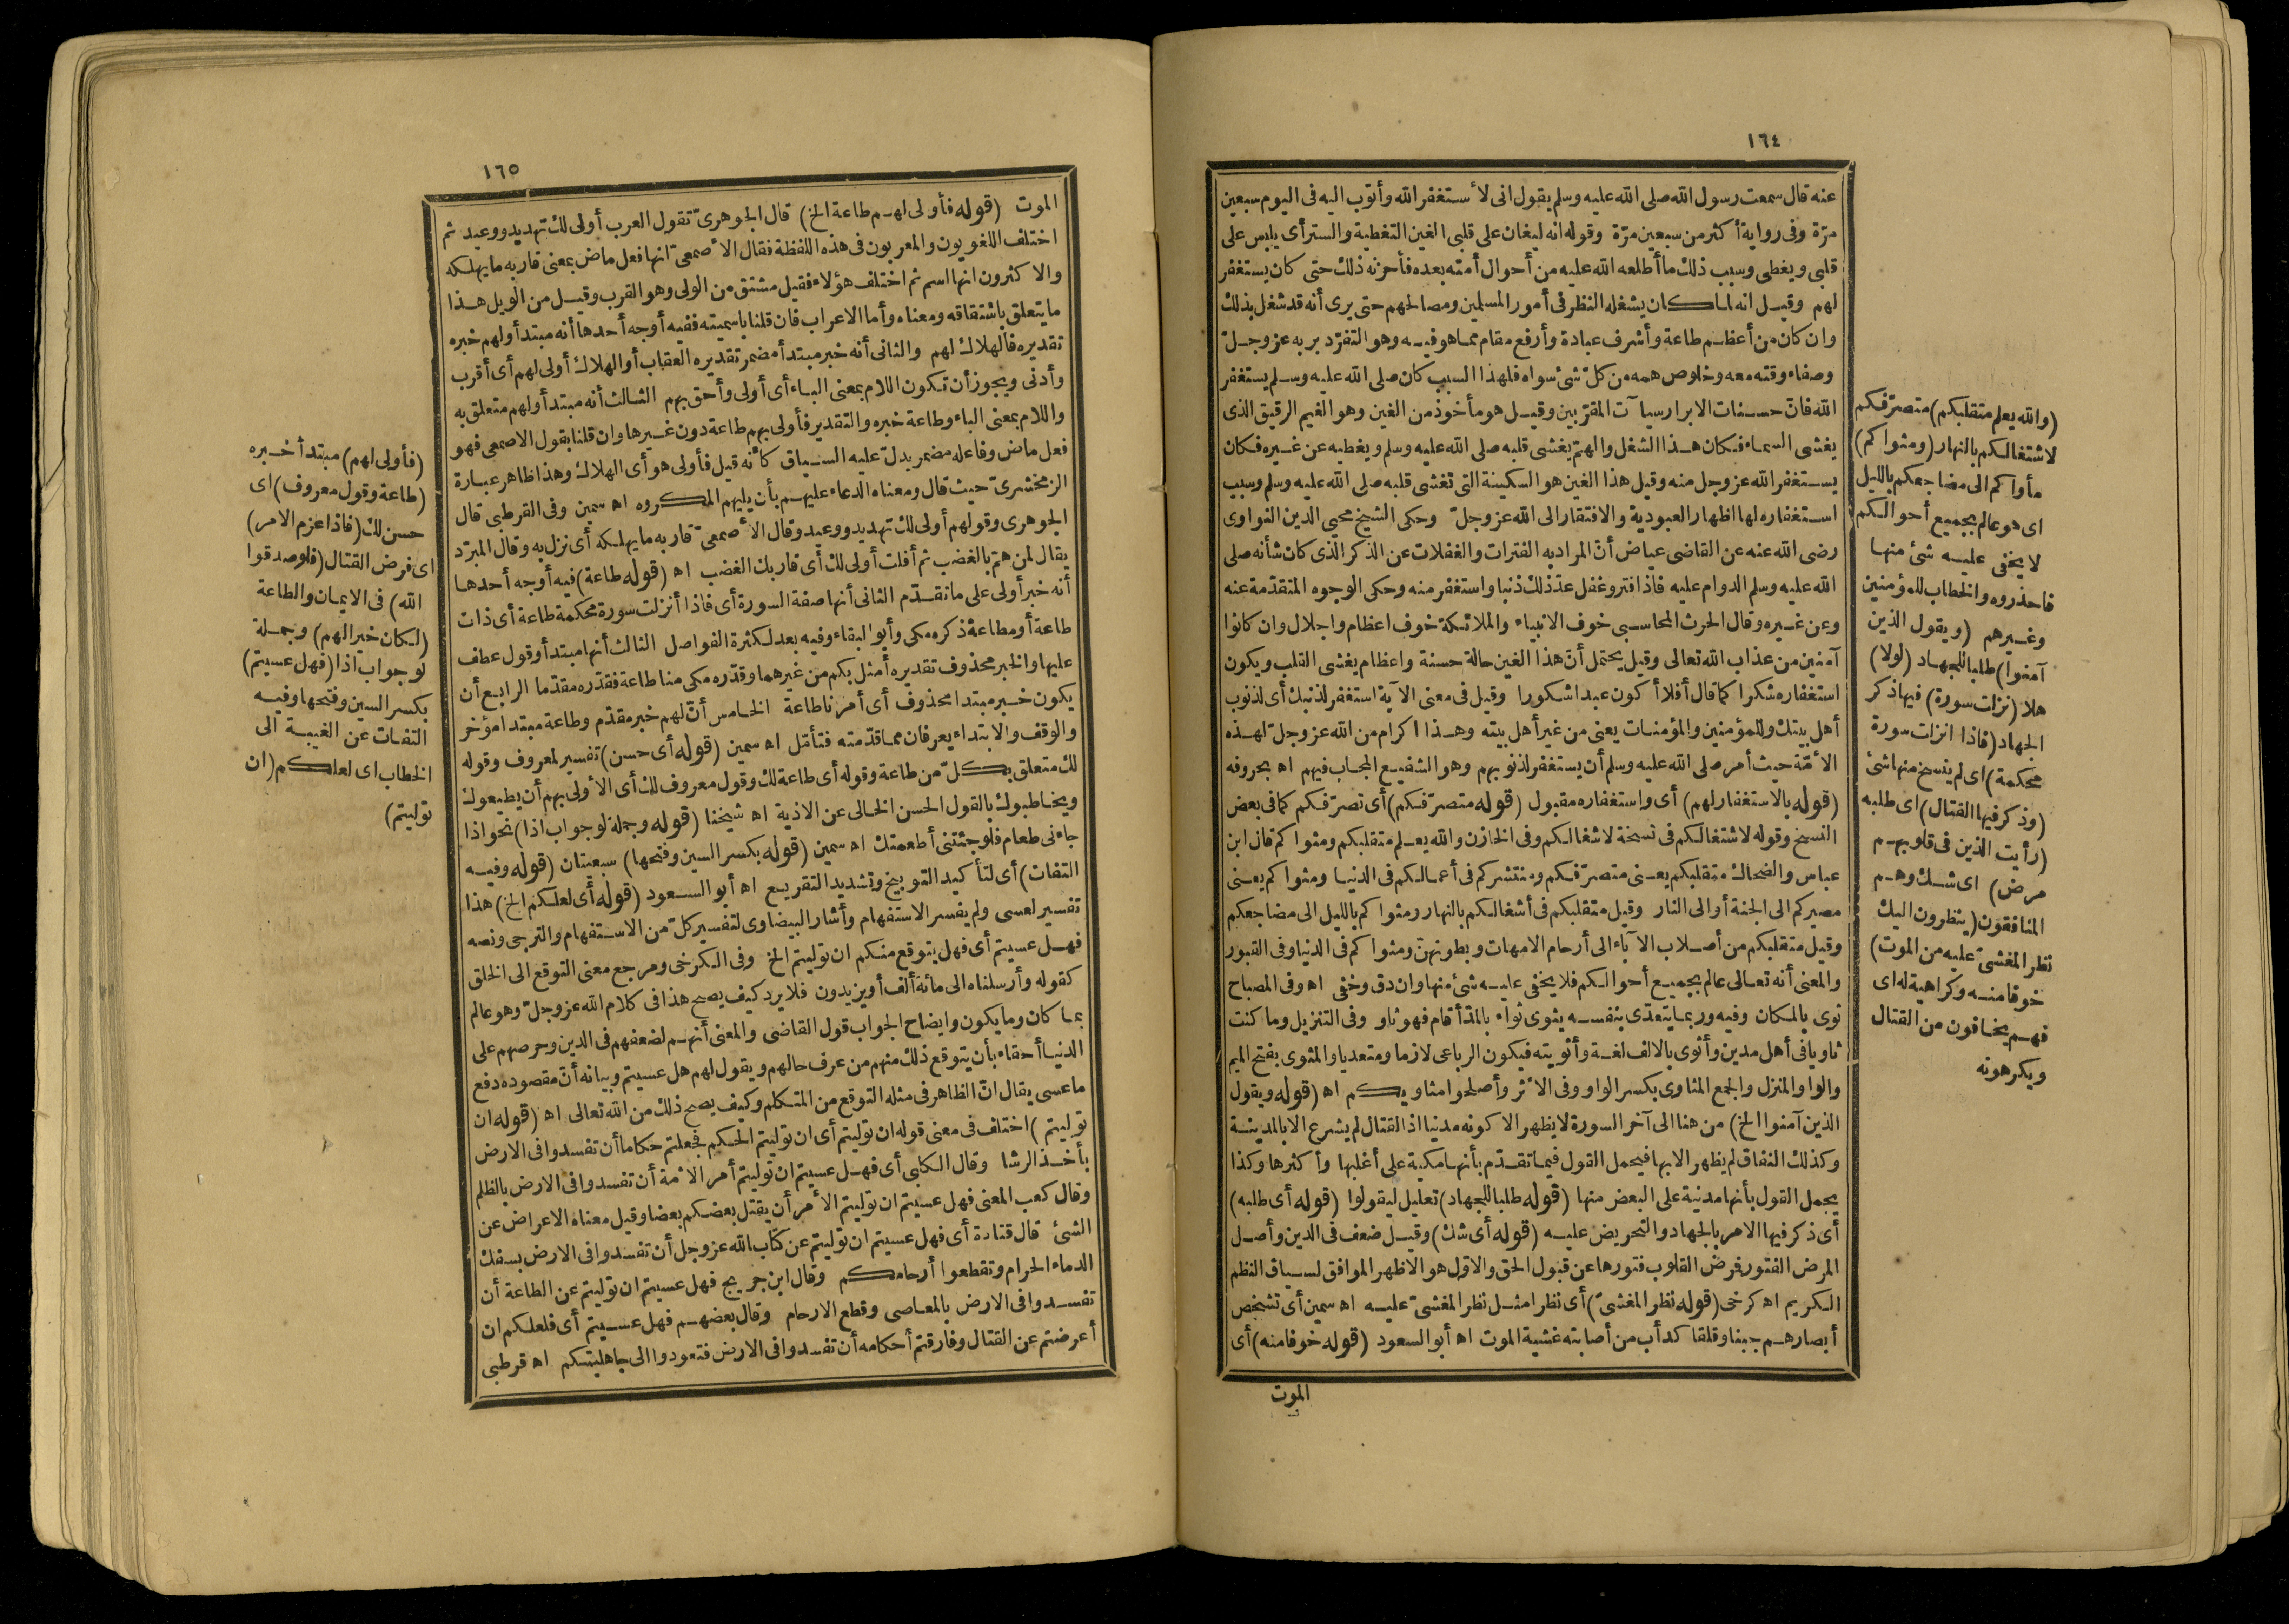 ١٦٤
عنه قال سمعت رسول الله صلى الله عليه وسلم يقول انى لا ٔستغفر الله وأتوب اليه فى اليوم سبعين
مرّة وفى رواية أكثر من سبعين مرّة وقوله انه ليغان على قلبى الغين التغطية والستر أى يلبس على
قلبى ويغطى وسبب ذلك ما أطلعه الله عليه من أحوال أمته بعده فأحزنه ذلك حتى كان يستغفر
لهم وقيل انه لما كان يشغله النظر فى أمور المسلمين ومصالحهم حتى يرى أنه قد شغل بذلك
وان كان من أعظم طاعة وأشرف عبادة وأرفع مقام مما هو فيه وهو التفرّد بربه عز وجلّ
وصفاء وقته معه وخلوص همه من كلّ شئ سواه فلهذا السبب كان صلى الله عليه وسلم يستغفر
الله فانّ حسنات الابرار سيآت المقرّبين وقيل هو مأخوذ من الغين وهو الغيم الرقيق الذى
يغشى السماء فكان هذا الشغل والهمّ يغشى قلبه صلى الله عليه وسلم ويغطيه عن غيره فكان
يستغفر الله عز وجل منه وقيل هذا الغين هو السكينة التى تغشى قلبه صلى الله عليه وسلم وسبب
استغفاره لها اظهار العبودية والافتقار الى الله عز وجلّ وحكى الشيخ محيى الدين النواوى
رضى الله عنه عن القاضى عياض أنّ المراد به الفترات والغفلات عن الذكر الذى كان شأنه صلى
الله عليه وسلم الدوام عليه فاذا فتر وغفل عدّ ذلك ذنبا واستغفر منه وحكى الوجوه المتقدّمة عنه
وعن غيره وقال الحرث المحاسبى خوف الانبياء والملائكة خوف اعظام واجلال وان كانوا
آمنين من عذاب الله تعالى وقيل يحتمل أنّ هذا الغين حالة حسنة واعظام يغشى القلب ويكون
استغفاره شكرا كما قال أفلا أكون عبدا شكورا وقيل فى معنى الآية استغفر لذنبك أى لذنوب
أهل بيتك وللمؤمنين والمؤمنات يعنى من غير أهل بيته وهذا اكرام من الله عز وجلّ لهذه
الامّة حيث أمر صلى الله عليه وسلم أن يستغفر لذنوبهم وهو الشفيع المجاب فيهم اه بحروفه
(قوله بالاستغفار لهم) أى واستغفاره مقبول (قوله متصرّفكم) أى تصرّفكم كما فى بعض
النسخ وقوله لاشتغالكم فى نسخة لاشغالكم وفى الخازن والله يعلم متقلبكم ومثواكم قال ابن
عباس والضحاك متقلبكم يعنى متصرّفكم ومنتشركم فى أعمالكم فى الدنيا ومثواكم يعنى
مصيركم الى الجنة أو الى النار وقيل متقلبكم فى أشغالكم بالنهار ومثواكم بالليل الى مضاجعكم
وقيل متقلبكم من أصلاب الآباء الى أرحام الامهات وبطونهنّ ومثواكم فى الدنيا وفى القبور
والمعنى أنه تعالى عالم بجميع أحوالكم فلا يخفى عليه شئ منها وان دق وخفى اه وفى المصباح
ثوى بالمكان وفيه وربما يتعدّى بنفسه يثوى ثواء بالمدّ أقام فهو ثاو وفى التنزيل وما كنت
ثاويا فى أهل مدين وأثوى بالالف لغة وأثويته فيكون الرباعى لازما ومتعديا والمثوى بفتح الميم
والواو المنزل والجمع المثاوى بكسر الواو وفى الاثر وأصلحوا مثاويكم اه (قوله ويقول
الذين آمنوا الخ) من هنا الى آخر السورة لا يظهر الا كونه مدنيا اذ القتال لم يشرع الا بالمدينة
وكذلك النفاق لم يظهر الا بها فيحمل القول فيما تقدّم بأنها مكية على أغلبها وأكثرها وكذا
يحمل القول بأنها مدنية على البعض منها (قوله طلبا للجهاد) تعليل ليقولوا (قوله أى طلبه)
أى ذكر فيها الامر بالجهاد والتحريض عليه (قوله أى شك) وقيل ضعف فى الدين وأصل
المرض الفتور فرض القلوب فتورها عن قبول الحق والاوّل هو الاظهر الموافق لسياق النظم
الكريم اه كرخى (قوله نظر المغشىّ) أى نظرا مثل نظر المغشىّ عليه اه سمين أى تشخص
أبصارهم جبنا وقلقا كدأب من أصابته غشية الموت اه أبو السعود (قوله خوفا منه) أى
الموت
(والله يعلم متقلبكم) متصرّفكم
لاشتغالكم بالنهار (ومثواكم)
مأواكم الى مضاجعكم بالليل
اى هو عالم بجميع أحوالكم
لا يخفى عليه شئ منها
فاحذروه والخطاب للمؤمنين
وغيرهم (ويقول الذين
آمنوا) طلبا للجهاد (لولا)
هلا (نزلت سورة) فيها ذكر
الجهاد (فاذا انزلت سورة
محكمة) اى لم ينسخ منها شئ
(وذكر فيها القتال) اى طلبه
(رأيت الذين فى قلوبهم
مرض) اى شك وهم
المنافقون (ينظرون اليك
نظر المغشىّ عليه من الموت)
خوفا منه وكراهية له اى
فهم يخافون من القتال
ويكرهونه
١٦٥
الموت (قوله فأولى لهم طاعة الخ) قال الجوهرىّ تقول العرب أولى لك تهديد ووعيد ثم
اختلف اللغويون والمعربون فى هذه اللفظة فقال الاصمعىّ انها فعل ماض بمعنى قاربه ما يهلكه
والاكثرون انها اسم ثم اختلف هؤلاء فقيل مشتق من الولى وهو القرب وقيل من الويل هذا
ما يتعلق باشتقاقه ومعناه وأما الاعراب فان قلنا باسميته ففيه أوجه أحدها أنه مبتدأ ولهم خبره
تقديره فالهلاك لهم والثانى أنه خبر مبتدأ مضمر تقديره العقاب أو الهلاك أولى لهم أى أقرب
وأدنى ويجوز أن تكون اللام بمعنى الباء أى أولى وأحق بهم الثالث أنه مبتدأ ولهم متعلق به
واللام بمعنى الباء وطاعة خبره والتقدير فأولى بهم طاعة دون غيرها وان قلنا بقول الاصمعى فهو
فعل ماض وفاعله مضمر يدلّ عليه السياق كأنه قيل فأولى هو أى الهلاك وهذا ظاهر عبارة
الزمخشرىّ حيث قال ومعناه الدعاء عليهم بأن يليهم المكروه اه سمين وفى القرطبى قال
الجوهرى وقولهم أولى لك تهديد ووعيد وقال الاصمعىّ قاربه ما يهلكه أى نزل به وقال المبرّد
يقال لمن همّ بالغضب ثم أفلت أولى لك أى قاربك الغضب اه (قوله طاعة) فيه أوجه أحدها
أنه خبر أولى على ما تقدّم الثانى أنها صفة السورة أى فاذا أنزلت سورة محكمة طاعة أى ذات
طاعة أو مطاعة ذكره مكى وأبو البقاء وفيه بعد لكثرة الفواصل الثالث أنها مبتدأ وقول عطف
عليها والخبر محذوف تقديره أمثل بكم من غيرهما وقدّره مكى منا طاعة فقدّره مقدّما الرابع أن
يكون خبر مبتدا محذوف أى أمرنا طاعة الخامس أنّ لهم خبر مقدّم وطاعة مبتدا مؤخر
والوقف والابتداء يعرفان مما قدّمته فتأمّل اه سمين (قوله أى حسن) تفسير لمعروف وقوله
لك متعلق بكلّ من طاعة وقوله أى طاعة لك وقول معروف لك أى الاولى بهم أن يطيعوك
ويخاطبوك بالقول الحسن الخالى عن الاذية اه شيخنا (قوله وجملة لو جواب اذا) نحو اذا
جاءنى طعام فلو جئتنى أطعمتك اه سمين (قوله بكسر السين وفتحها) سبعيتان (قوله وفيه
التفات) أى لتأكيد التوبيخ وتشديد التقريع اه أبو السعود (قوله أى لعلكم الخ) هذا
تفسير لعسى ولم يفسر الاستفهام وأشار البيضاوى لتفسير كلّ من الاستفهام والترجى ونصه
فهل عسيتم أى فهل يتوقع منكم ان توليتم الخ وفى الكرخى ومرجع معنى التوقع الى الخلق
كقوله وأرسلناه الى مائة ألف أو يزيدون فلا يرد كيف يصح هذا فى كلام الله عز وجلّ وهو عالم
بما كان وما يكون وايضاح الجواب قول القاضى والمعنى أنهم لضعفهم فى الدين وحرصهم على
الدنيا أحقاء بأن يتوقع ذلك منهم من عرف حالهم ويقول لهم هل عسيتم وبيانه أنّ مقصوده دفع
ما عسى يقال انّ الظاهر فى مثله التوقع من المتكلم وكيف يصح ذلك من الله تعالى اه (قوله ان
توليتم) اختلف فى معنى قوله ان توليتم أى ان توليتم الحكم فجعلتم حكاما أن تفسدوا فى الارض
بأخذ الرشا وقال الكلبى أى فهل عسيتم ان توليتم أمر الامّة أن تفسدوا فى الارض بالظلم
وقال كعب المعنى فهل عسيتم ان توليتم الامر أن يقتل بعضكم بعضا وقيل معناه الاعراض عن
الشئ قال قتادة أى فهل عسيتم ان توليتم عن كتاب الله عز وجل أن تفسدوا فى الارض بسفك
الدماء الحرام وتقطعوا أرحامكم وقال ابن جريج فهل عسيتم ان توليتم عن الطاعة أن
تفسدوا فى الارض بالمعاصى وقطع الارحام وقال بعضهم فهل عسيتم أى فلعلكم ان
أعرضتم عن القتال وفارقتم أحكامه أن تفسدوا فى الارض فتعودوا الى جاهليتكم اه قرطبى
(فأولى لهم) مبتدأ خبره
(طاعة وقول معروف) اى
حسن لك (فاذا عزم الامر)
اى فرض القتال (فلو صدقوا
الله) فى الايمان والطاعة
(لكان خيرا لهم) وجملة
لو جواب اذا (فهل عسيتم)
بكسر السين وفتحها وفيه
التفات عن الغيبة الى
الخطاب اى لعلكم (ان
توليتم)